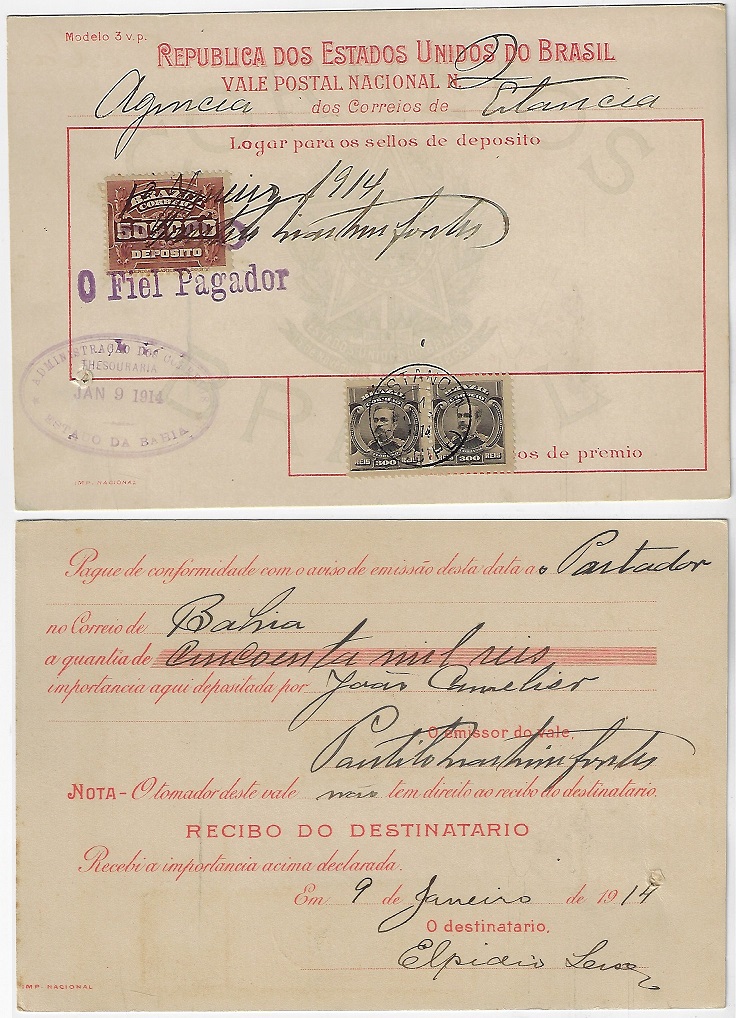 Modelo 3 v.p.
REPUBLICA DOS ESTADOS UNIDOS DO BRASIL
VALE POSTAL NACIONAL N. 2
Agencia dos Correios de Estancia
Logar para os sellos de deposito
1914
BRAZIL
CORREIO
50$000
DEPOSITO
O Fiel Pagador
ADMINISTRAÇÃO DOS CORREIOS
THESOURARIA
JAN 9 1914
ESTADO DA BAHIA
ESTANCIA
14
REIS 300 REIS REIS 300 REIS
os de premio
IMP. NACIONAL
Pague de confórmidade com o aviso de emissão desta data a o Portador
no Correio de Bahia
a quantia de cincoenta mil reis
importancia aqui depositada por João
O emissor do vale,
Martins Fontes
NOTA - O tomador deste vale não tem direito ao recibo do destinatario.
RECIBO DO DESTINATARIO
Recebi a importancia acima declarada.
Em 9 de Janeiro de 1914
O destinatario,
Elpidio
IMP. NACIONAL